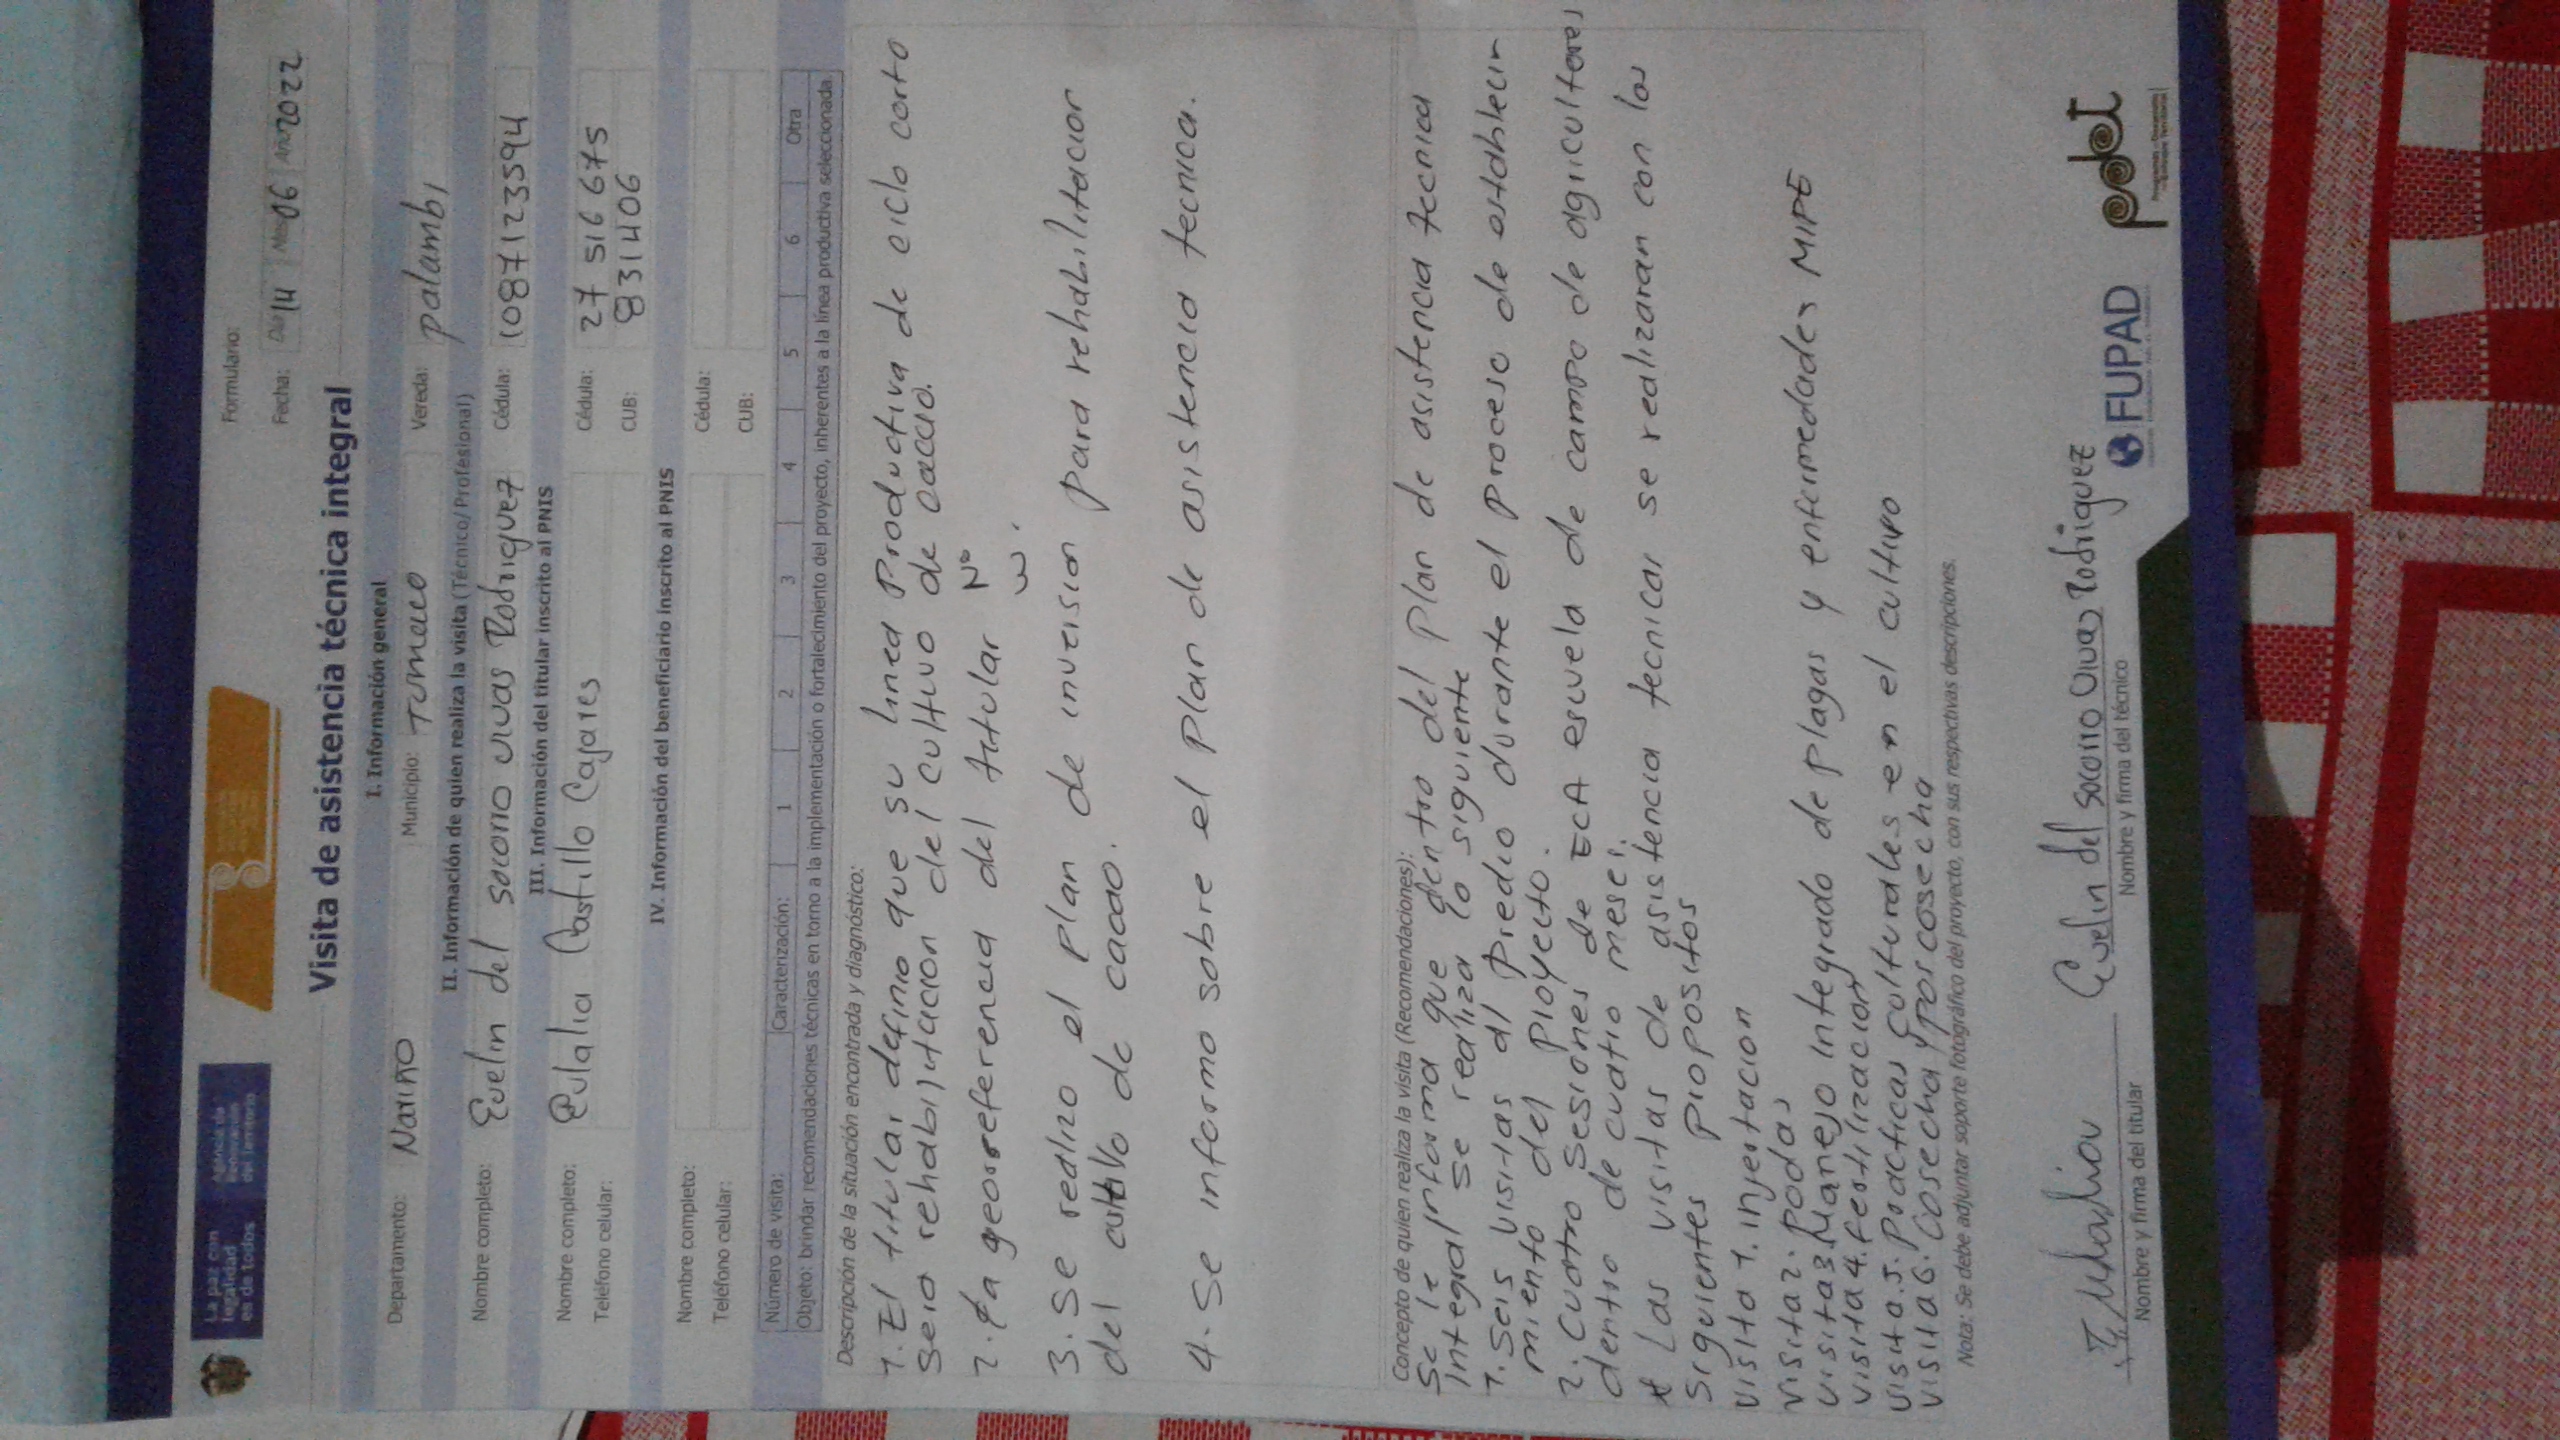 La paz con
legalidad
es de todos
Agencia de
Renovación
del Territorio
Formulario:
Fecha: Día 14 Mes 06 Año 2022
Visita de asistencia técnica integral
I. Información general
Departamento: Nariño Municipio: Tumaco Vereda: palambi
II. Información de quien realiza la visita (Técnico/Profesional)
Nombre completo: Evelin del socorro vivas Rodriguez Cédula: 1087123594
III. Información del titular inscrito al PNIS
Nombre completo: Eulalia Castillo Cajares Cédula: 27 516 675
Teléfono celular: CUB: 8314106
IV. Información del beneficiario inscrito al PNIS
Nombre completo: Cédula:
Teléfono celular: CUB:
Número de visita: Caracterización: 1 2 3 4 5 6 Otra
Objeto: brindar recomendaciones técnicas en torno a la implementación o fortalecimiento del proyecto, inherentes a la línea productiva seleccionada.
Descripción de la situación encontrada y diagnóstico:
1. El titular definio que su linea Productiva de ciclo corto
sera rehabilitacion del cultivo de cacao.
2. La georreferencia del titular N°
W.
3. Se realizo el plan de inversion para rehabilitacion
del cultivo de cacao.
4. Se informo sobre el plan de asistencia tecnica.
Concepto de quien realiza la visita (Recomendaciones):
Se le informa que dentro del plan de asistencia tecnica
integral se realiza lo siguiente
1. Seis visitas al predio durante el proceso de establecir
miento del proyecto.
2. Cuatro sesiones de ECA escuela de campo de agricultores
dentro de cuatro meses.
* Las visitas de asistencia tecnicas se realizaran con los
siguientes propositos
visita 1. injertacion
visita 2. podas
visita 3. Manejo integrado de plagas y enfermedades MIPE
visita 4. fertilizacion
visita 5. Practicas culturales en el cultivo
visita 6. Cosecha y poscosecha
Nota: Se debe adjuntar soporte fotográfico del proyecto, con sus respectivas descripciones.
Evelin del socorro Vivas Rodriguez
Nombre y firma del titular Nombre y firma del técnico
FUPAD
pdet